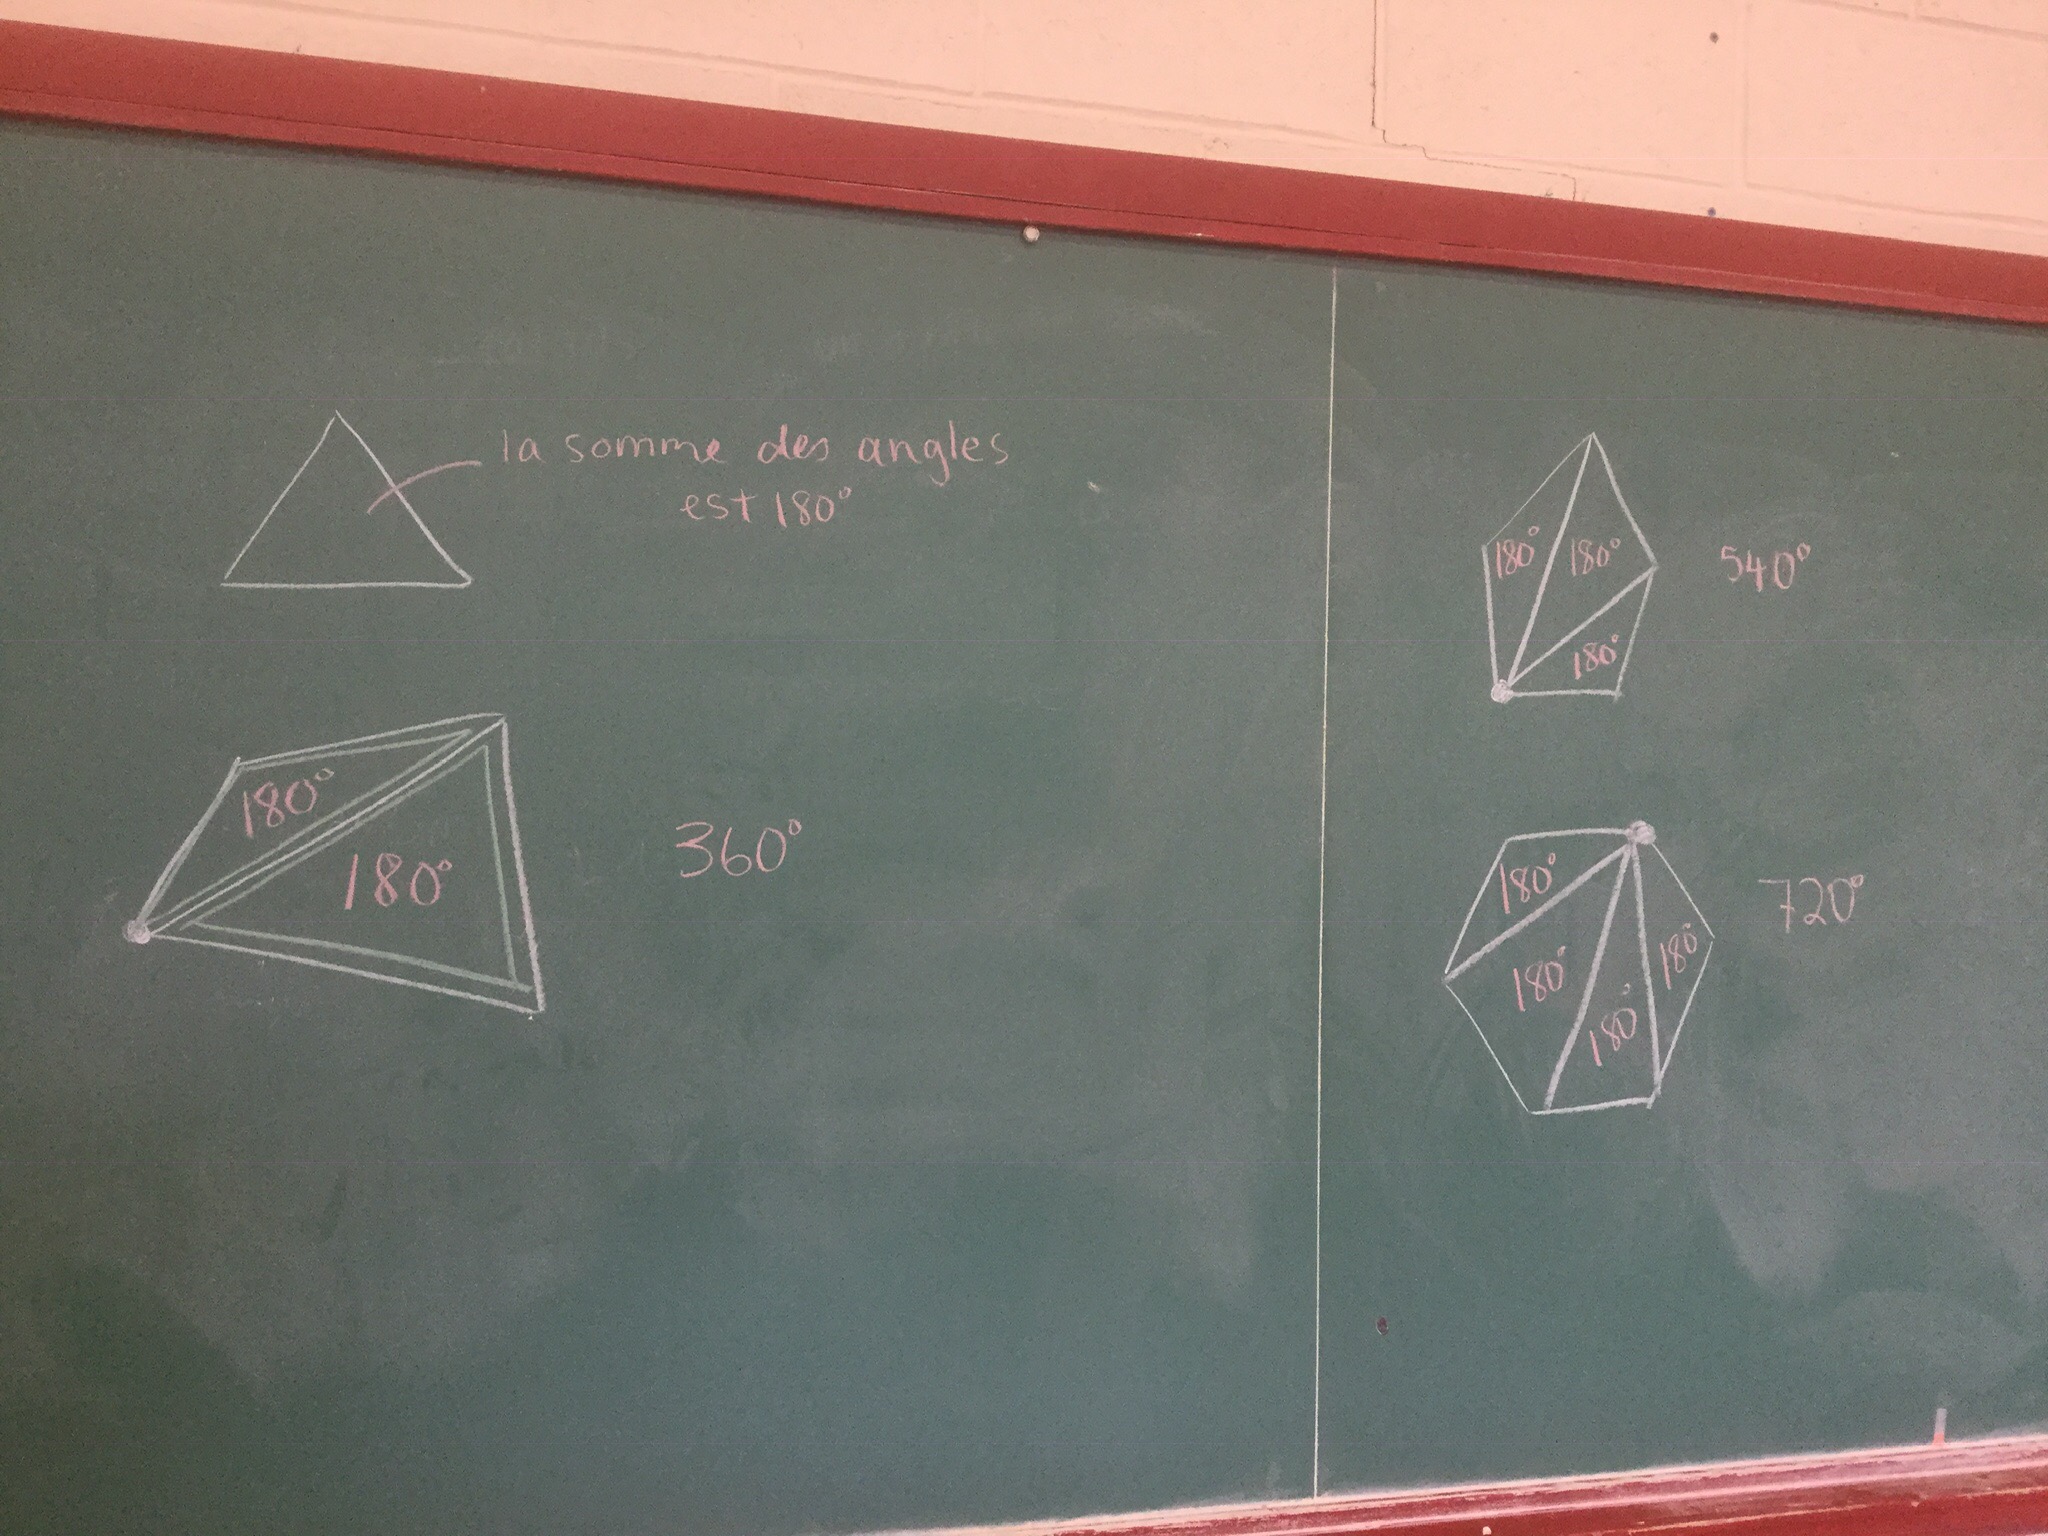 la somme des angles
est 180°
180°
180°
360°
180°
180°
180°
540°
180°
180°
180°
180°
720°